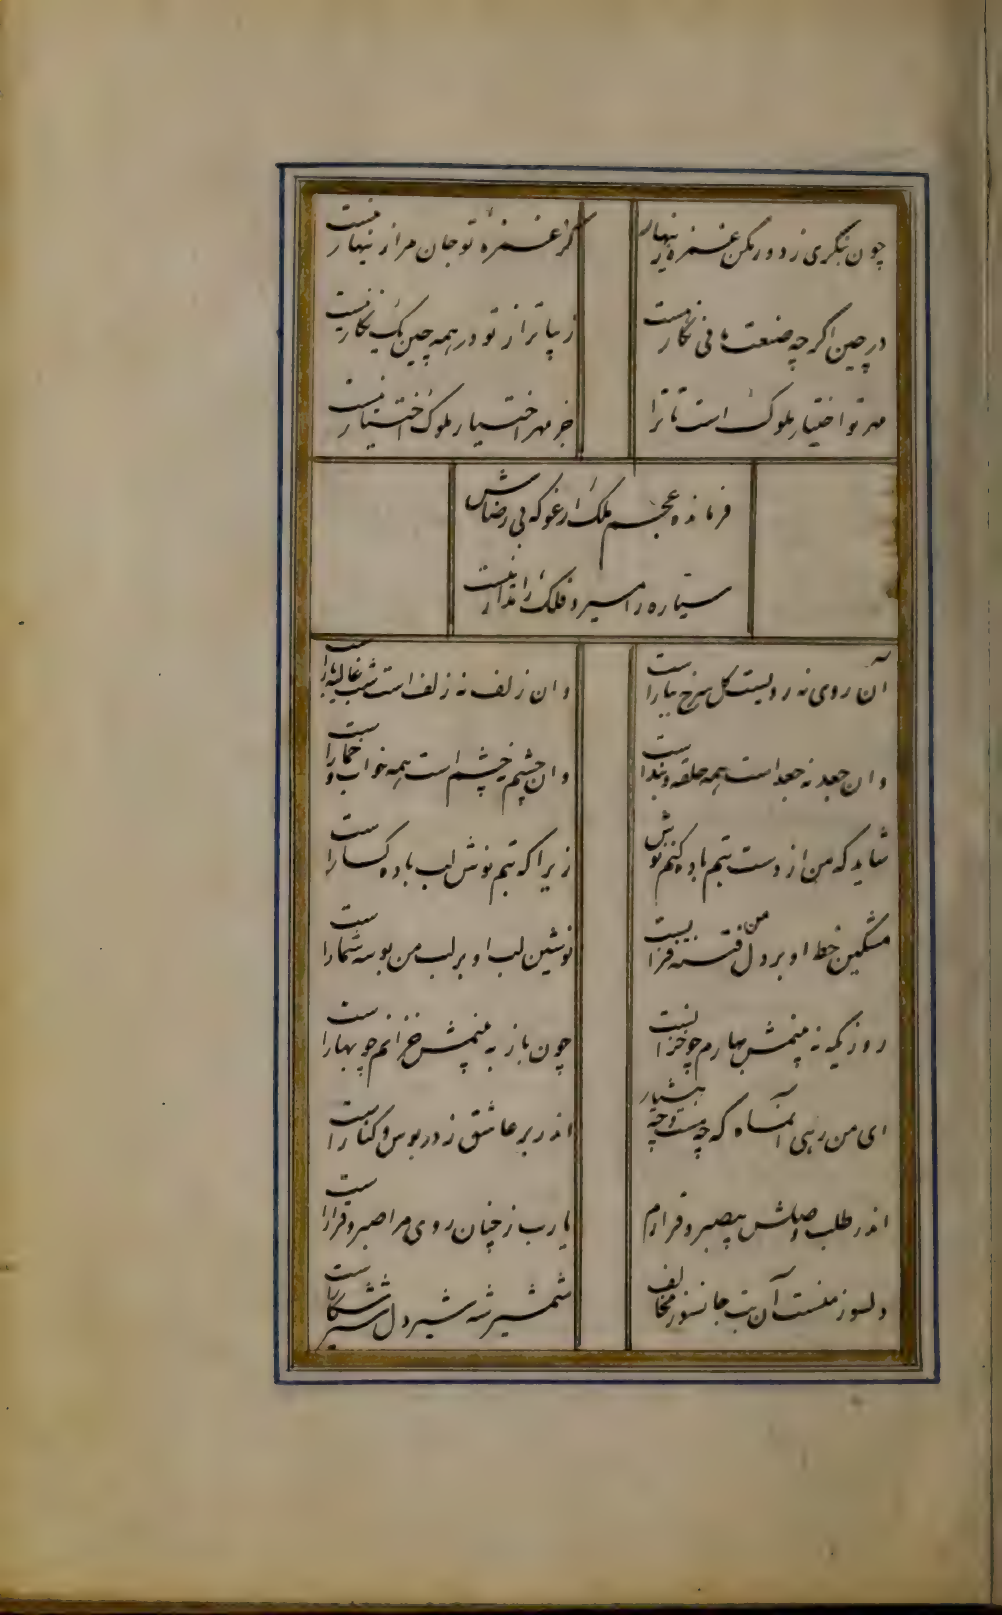 چون بنگری ز دور مکن غمزه زینهار
کز غمزه تو جان مرا زینهار نیست
در چین اگر چه صنعت مانی نگاریست
زیباتر از تو در همه چین یک نگار نیست
مهر تو اختیار ملوک است تا ترا
جز مهر اختیار ملوک اختیار نیست
فرمانده عجم ملک ارغو که بی رضاش
ستاره را مسیر و فلک را مدار نیست
آن روی نه رویست گل سرخ ببارست
وان زلف نه زلف است شب غالیه بارست
وان جعد نه جعد است همه حلقه و بندست
وان چشم نه چشم است همه خواب و خمارست
شاید که من از دست بتم باده کنم نوش
زیرا که بتم نوش لب باده گسارست
مشکین خط او بر دل من فتنه فزایست
نوشین لب او بر لب من بوسه شمارست
روزیکه نه بینمش بهارم چو خزانست
چون باز به بینمش خزانم چو بهارست
ای من رهی آنماه که چه مست و چه هشیار
اندر بر عاشق ز در بوس و کنارست
اندر طلب وصلش بیصبر و قرارم
یا رب ز چنان روی مرا صبر و قرارست
دلسوز منست آن بت جانسوز مخالف
شمشیر شه شیردل شیر شکارست